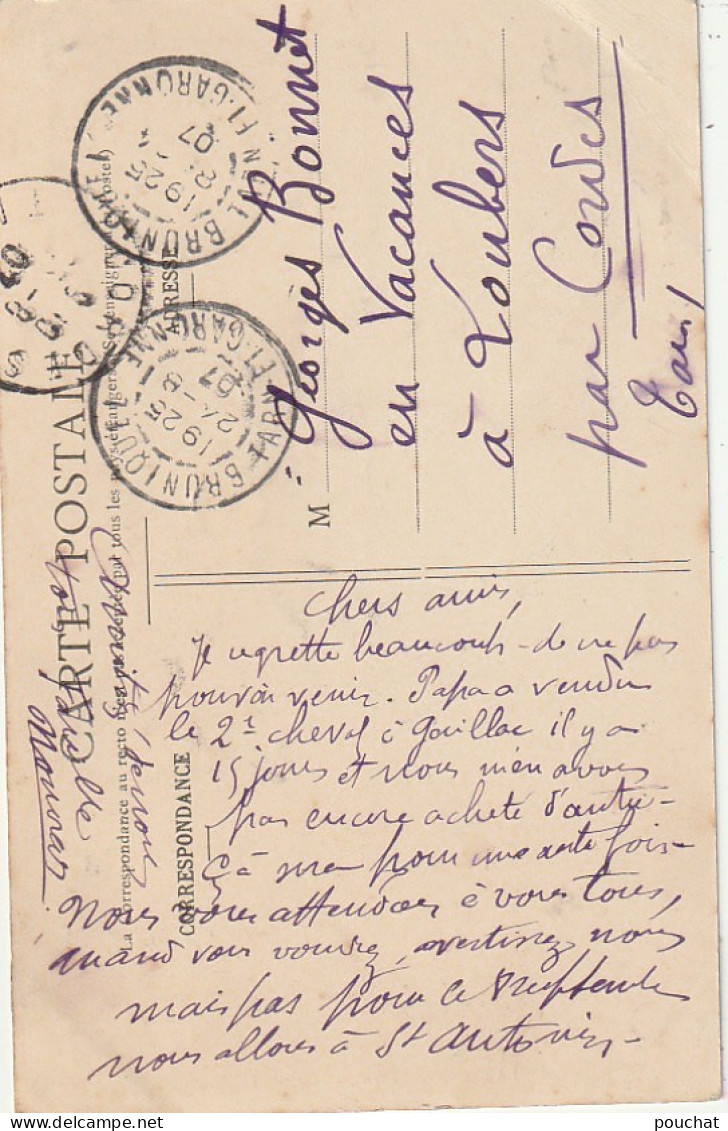 CARTE POSTALE
La Correspondance au recto n'est pas acceptée par tous les pays étrangers (Se renseigner à la Poste)
CORRESPONDANCE
ADRESSE
BRUNIQUEL
TARN ET GARONNE
1925
24-8
07
BRUNIQUEL
TARN ET GARONNE
1925
07
M
Georges Bonnet
en Vacances
à Loubers
par Cordes
Tarn
Chers amis,
Je regrette beaucoup de ne pas
pouvoir venir. Papa a vendu
le 2e cheval à Gaillac il y a
15 jours et nous n'en avons
pas encore acheté d'autre
Ça sera pour une autre fois
Nous vous attendons à vous tous,
quand vous voudrez, avertissez nous
mais pas pour le 8 septembre
nous allons à St Antonin